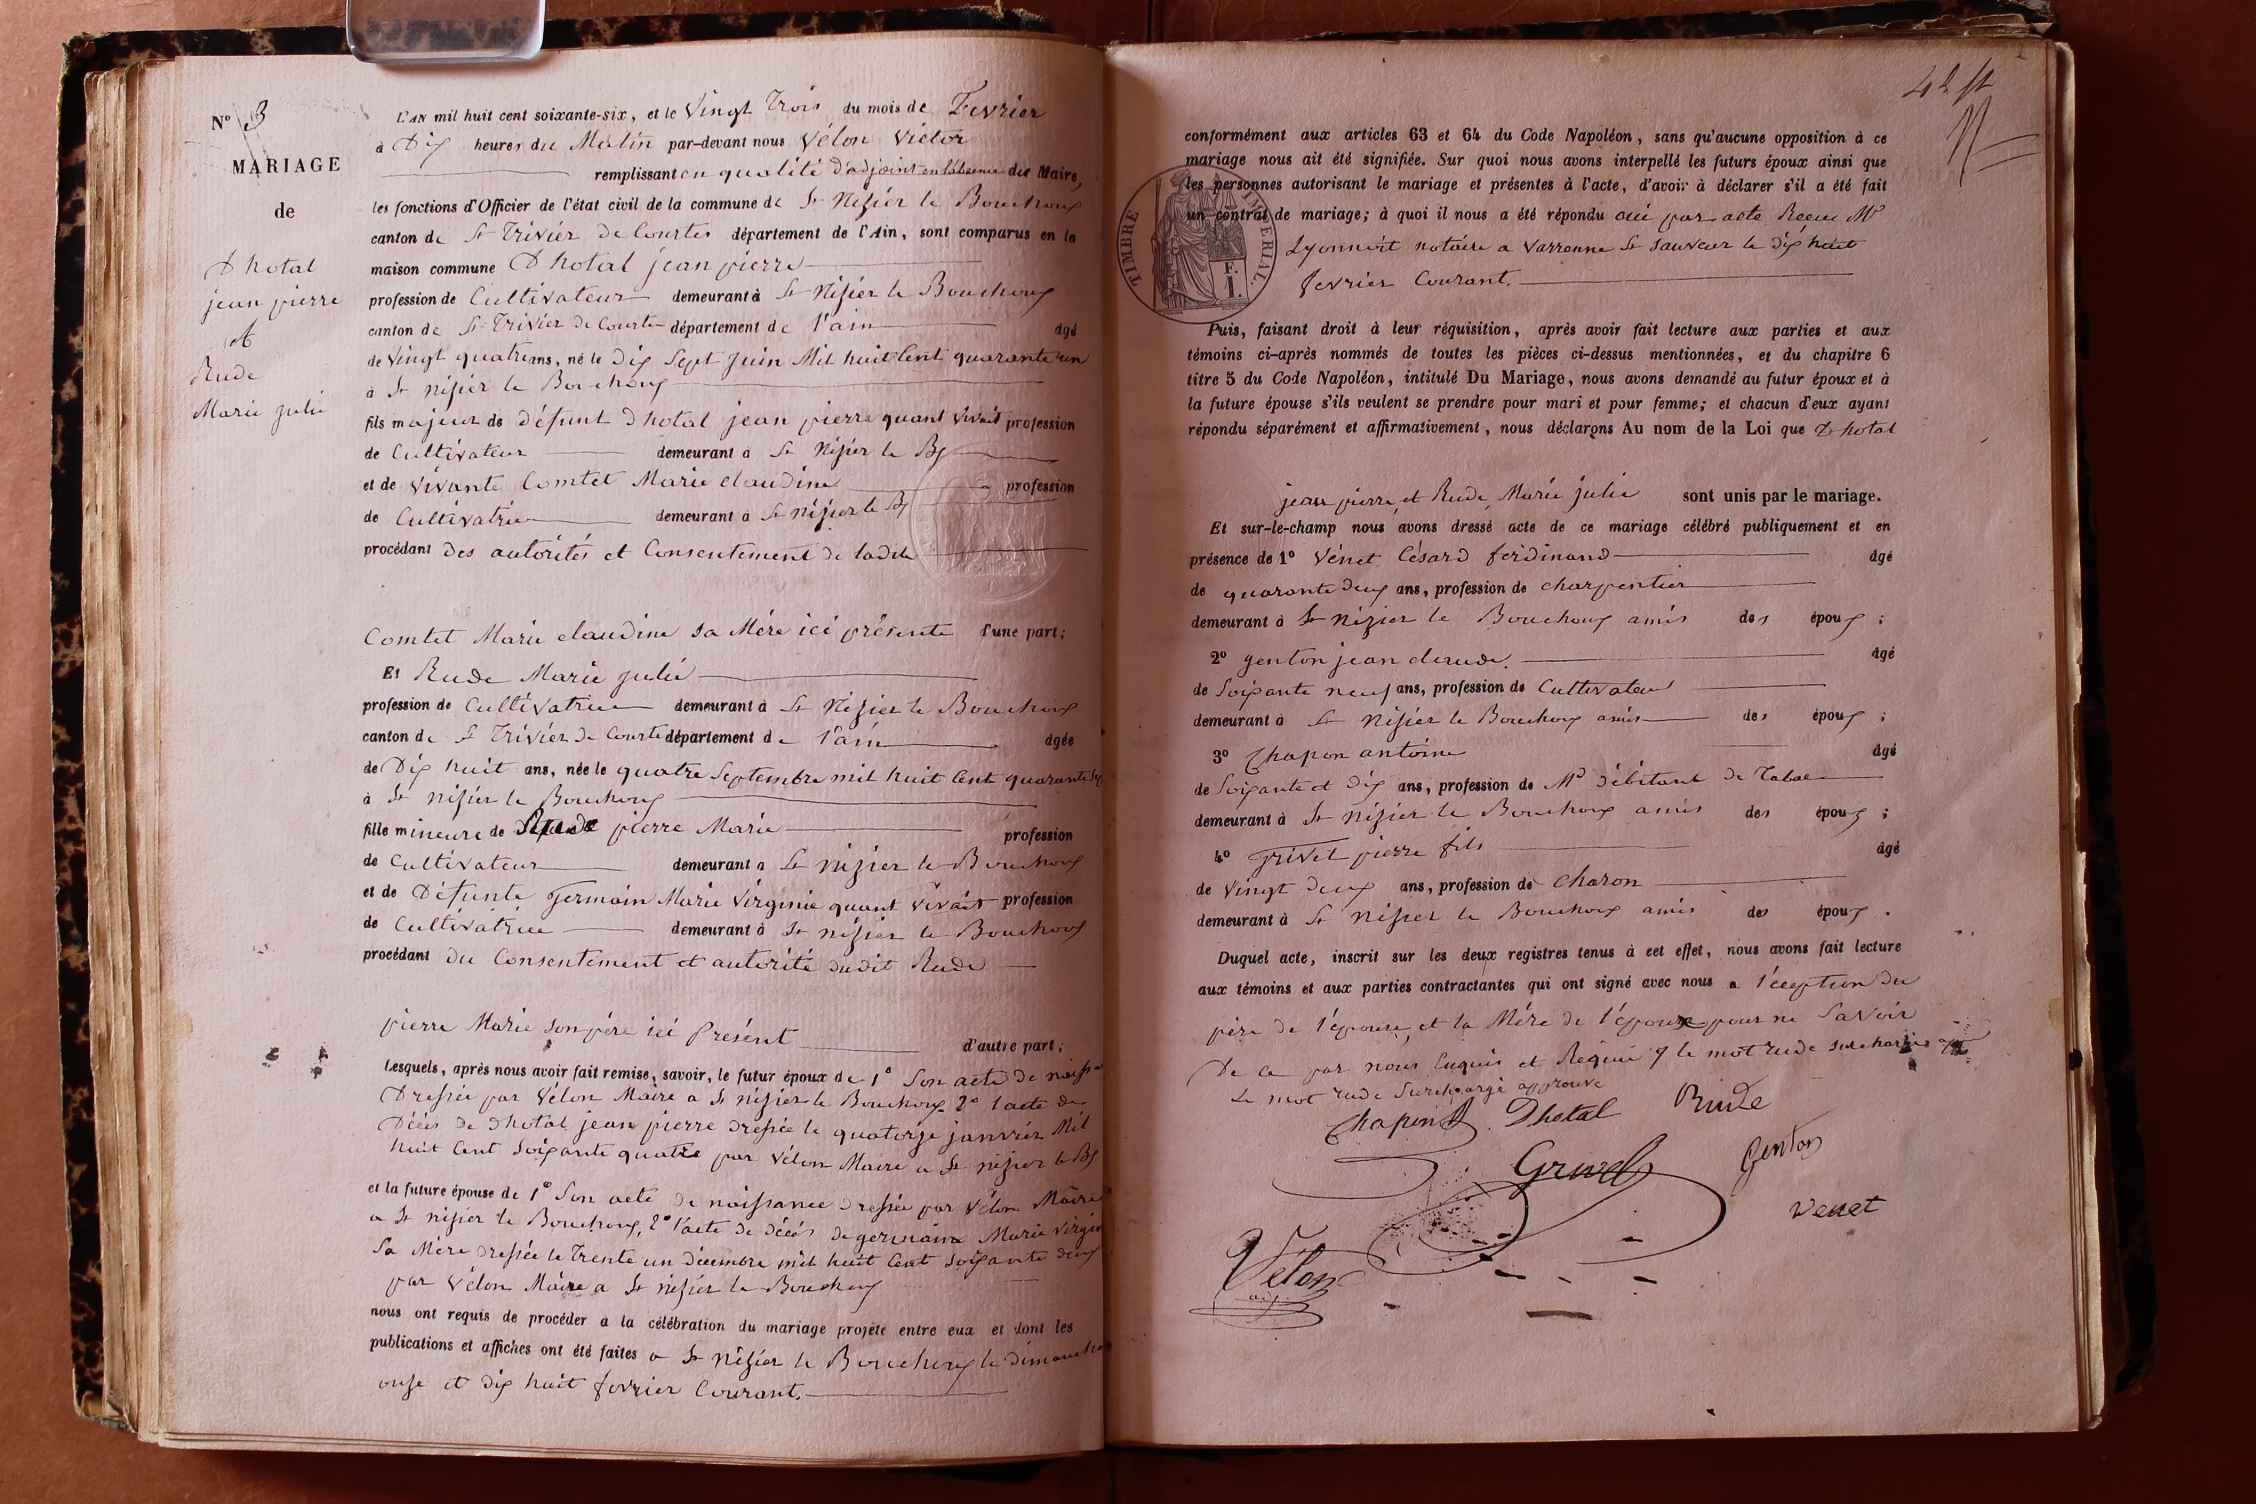 N° 3
MARIAGE
de
Dhotal
jean pierre
et
Rude
Marie julie
L'AN mil huit cent soixante-six, et le Vingt Trois du mois de Fevrier
à Dix heures du Matin par-devant nous Vélon Victor
remplissant en qualité d'adjoint en l'absence du Maire,
les fonctions d'Officier de l'état civil de la commune de St Nizier le Bouchoux
canton de St Trivier de Courtes département de l'Ain, sont comparus en la
maison commune Dhotal jean pierre
profession de Cultivateur demeurant à St Nizier le Bouchoux
canton de St Trivier de Courtes département de l'ain âgé
de Vingt quatre ans, né le Dix Sept Juin Mil huit Cent quarante un
à St nizier le Bouchoux
fils majeur de défunt Dhotal jean pierre quant vivait profession
de Cultivateur demeurant à St Nizier le Bx
et de vivante Comtet Marie claudine profession
de Cultivatrice demeurant à St nizier le Bx
procédant des autorités et Consentement de ladite
Comtet Marie claudine sa Mére ici présente d'une part;
Et Rude Marie julie
profession de Cultivatrice demeurant à St Nizier le Bouchoux
canton de St Trivier de Courtes département de l'ain âgée
de Dix huit ans, née le quatre Septembre mil huit Cent quarante
à St nizier le Bouchoux
fille mineure de Rude pierre Marie profession
de Cultivateur demeurant a St nizier le Bouchoux
et de Défunte Germain Marie Virginie quant vivait profession
de Cultivatrice demeurant à St nizier le Bouchoux
procédant du Consentement et autorité dudit Rude
pierre Marie son pére ici Présent d'autre part;
Lesquels, après nous avoir fait remise, savoir, le futur époux de 1° Son acte de
Dressée par Vélon Maire a St nizier le Bouchoux 2° l'acte de
Décés de Dhotal jean pierre dressée le quatorze janvier Mil
huit Cent Soixante quatre par Vélon Maire a St nizier le Bx
et la future épouse de 1° Son acte de naissance dressée par Vélon Maire
a St nizier le Bouchoux, 2° l'acte de décés de germain Marie
Sa Mére dressée le Trente un décembre mil huit Cent soixante deux
par Vélon Maire a St nizier le Bouchoux
nous ont requis de procéder a la célébration du mariage projeté entre eux et dont les
publications et affiches ont été faites a St Nizier le Bouchoux le dimanche
onze et dix huit fevrier Courant.
conformément aux articles 63 et 64 du Code Napoléon, sans qu'aucune opposition à ce
mariage nous ait été signifiée. Sur quoi nous avons interpellé les futurs époux ainsi que
les personnes autorisant le mariage et présentes à l'acte, d'avoir à déclarer s'il a été fait
un contrat de mariage; à quoi il nous a été répondu oui par acte Recue Me
notaire a Varenne St Sauveur le dix huit
fevrier Courant.
TIMBRE IMPERIAL.
Puis, faisant droit à leur réquisition, après avoir fait lecture aux parties et aux
témoins ci-après nommés de toutes les pièces ci-dessus mentionnées, et du chapitre 6
titre 5 du Code Napoléon, intitulé Du Mariage, nous avons demandé au futur époux et à
la future épouse s'ils veulent se prendre pour mari et pour femme; et chacun d'eux ayant
répondu séparément et affirmativement, nous déclarons Au nom de la Loi que Dhotal
jean pierre, et Rude, Marie julie sont unis par le mariage.
Et sur-le-champ nous avons dressé acte de ce mariage célébré publiquement et en
présence de 1° Vénet Césard ferdinand âgé
de quarante deux ans, profession de charpentier
demeurant à St nizier le Bouchoux amis des époux ;
2° genton jean claude. âgé
de Soixante neuf ans, profession de Cultivateur
demeurant à St Nizier le Bouchoux amis des époux ;
3° Chapon antoine âgé
de Soixante et Dix ans, profession de Md débitant de Tabac
demeurant à St nizier le Bouchoux amis des époux ;
4° Grivel pierre fils âgé
de Vingt deux ans, profession de Charon
demeurant à St Nizier le Bouchoux amis des époux .
Duquel acte, inscrit sur les deux registres tenus à cet effet, nous avons fait lecture
aux témoins et aux parties contractantes qui ont signé avec nous a l'éception du
pére de l'épouse, et la Mére de l'époux pour ne Savoir
De ce par nous Enquis et Requis le mot rude surchargé
Le mot rude Surchargé approuvé
Chapon Dhotal Rude
Grivel Genton
Venet
Vélon
adj